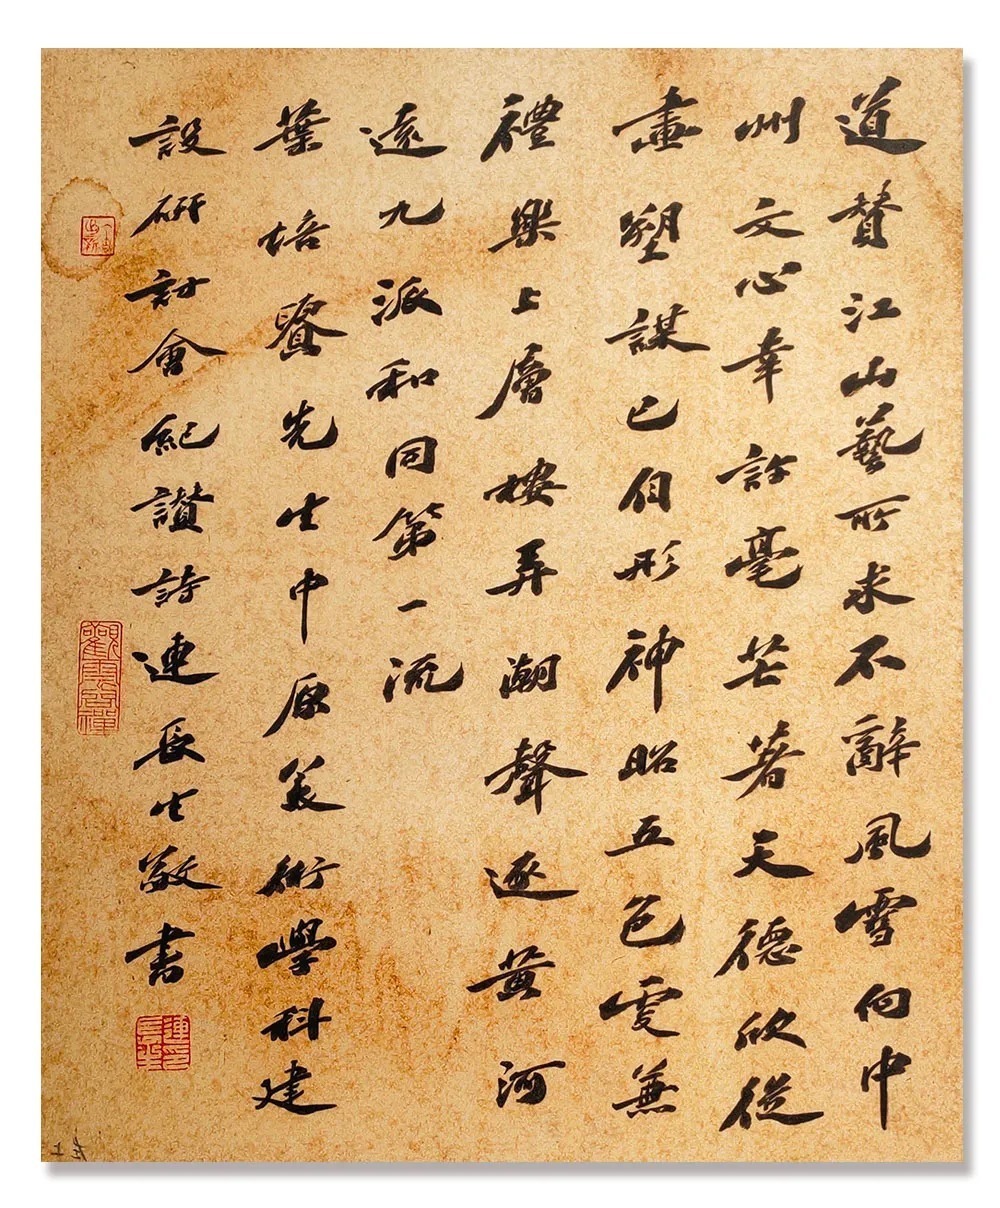 道贊江山藝所求不辭風雪向中
州文心幸許毫芒著天德欣從
畫塑謀已自形神昭五色更兼
禮樂上層樓弄潮聲逐黃河
遠九派和同第一流
葉培貴先生中原美術學科建
設研討會紀讚詩連長生敬書
連長生印